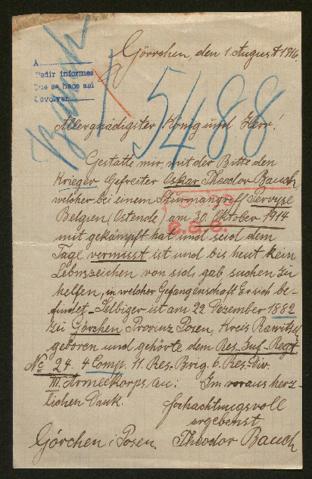 Görchen, den 1 August 1916.
A
Pedir informes
Que se hace así
devolver
5488
Allergnädigster König und Herr!
Gestatte mir mit der Bitte den
Krieger Gefreiter Oskar Theodor Bauch
welcher bei einem Sturmangriff
Belgien (Ostende) am 30. Oktober 1914
mit gekämpft hat und seid dem
Tage vermisst ist und bis heut kein
Lebnszeichen von sich gab suchen zu
helfen, in welcher Gefangenschaft Er sich be-
findet. Selbiger ist am 22 Dezember 1882
zu Görchen Provinz Posen, Kreis Rawitsch
geboren und gehörte dem Res. Inf. Regt
No 24. 4 Comp. 11. Res. Brig. 6. Res. Div.
III. Armeekorps an. Im voraus herz-
lichen Dank.
Hochachtungsvoll
ergebenst
Görchen i. Posen. Theodor Bauch